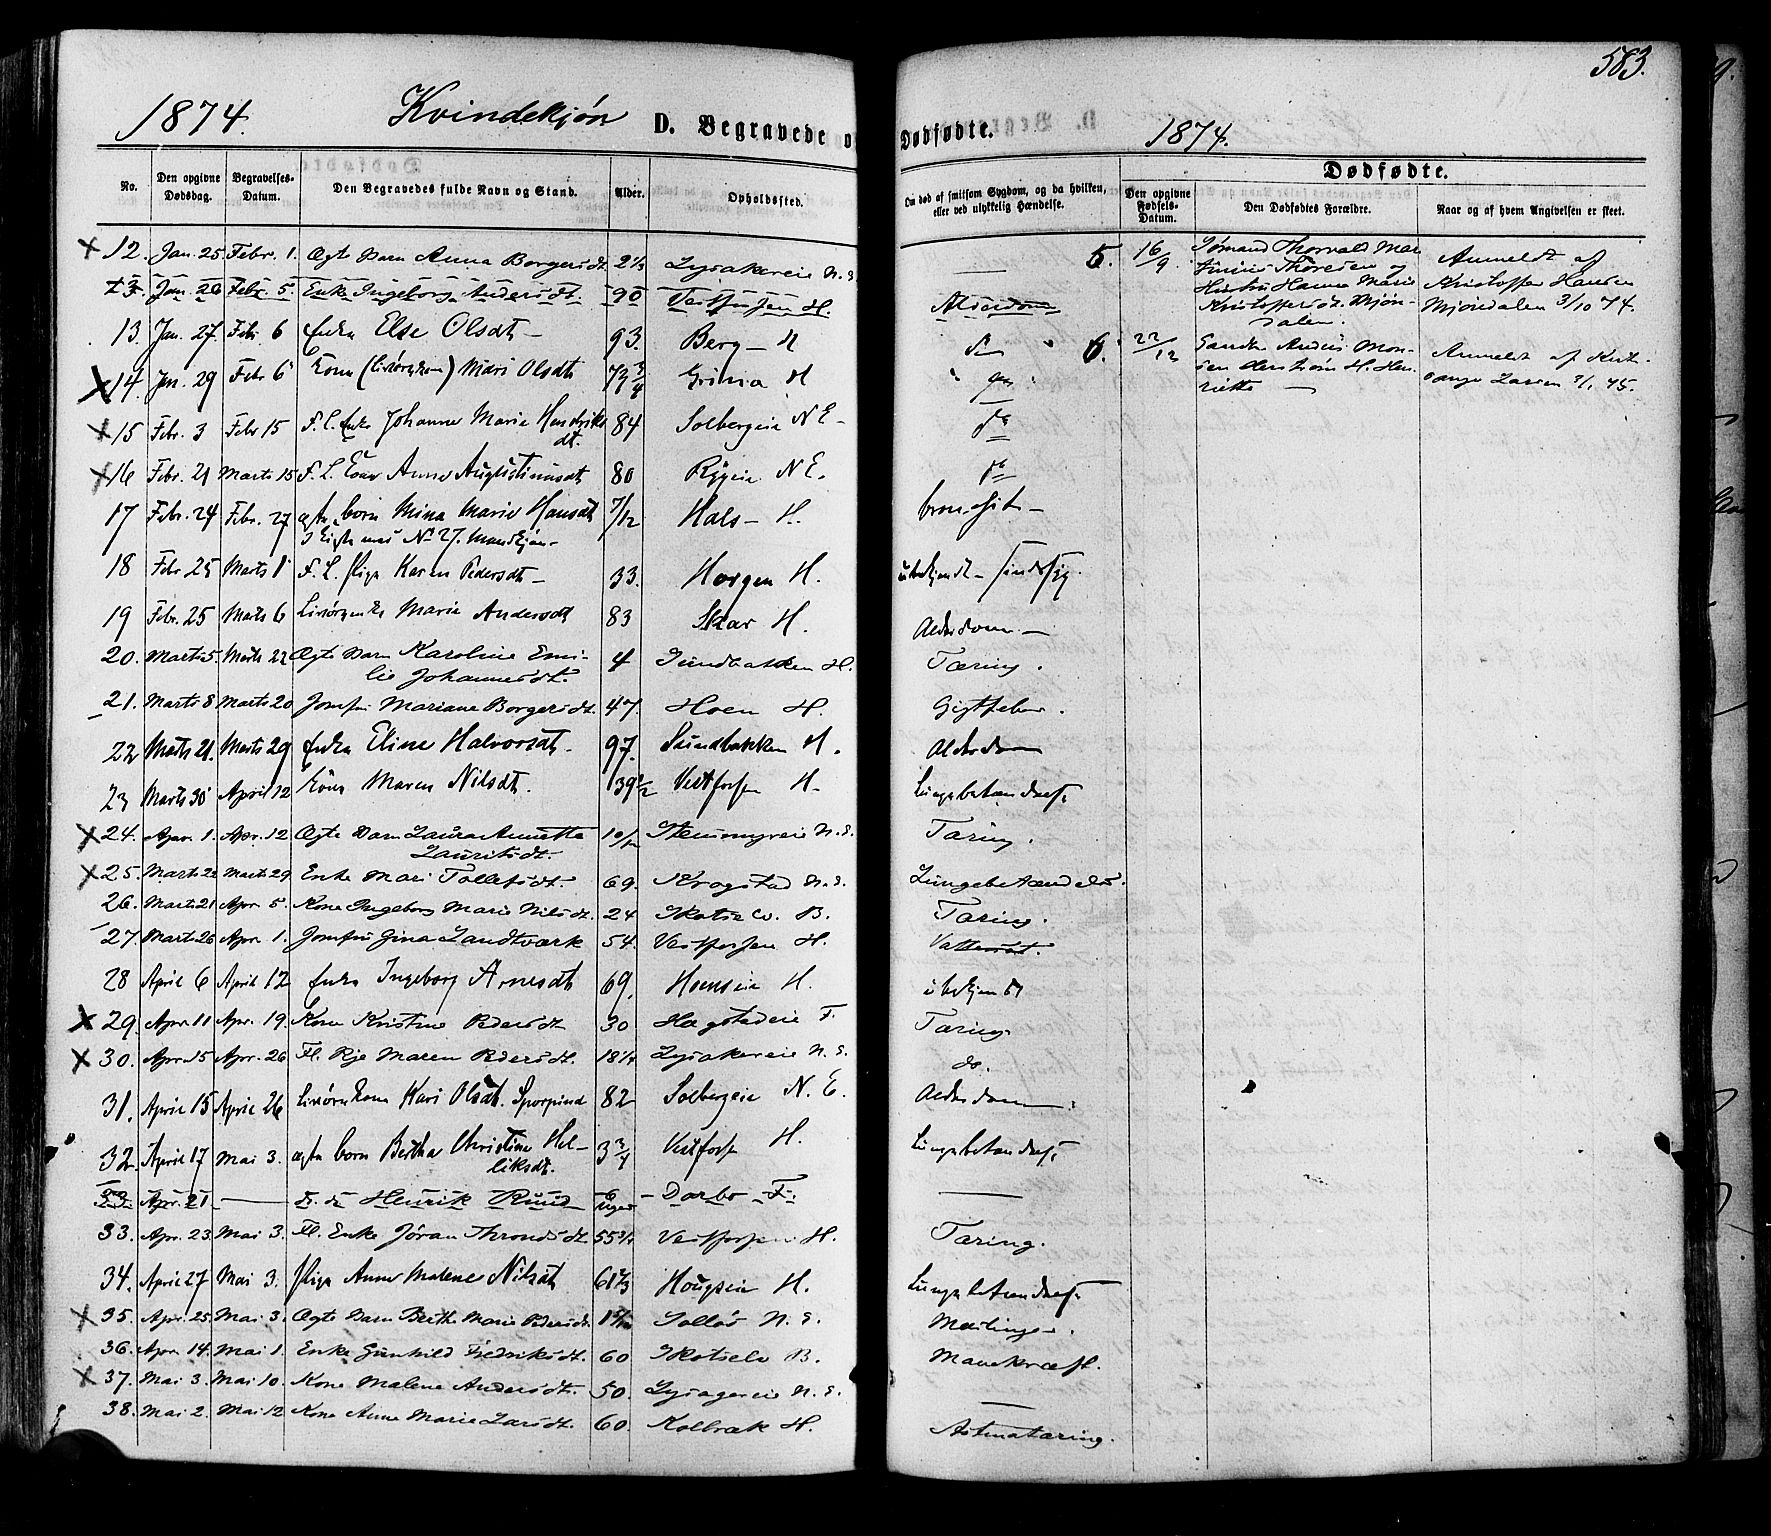 583.
1874. Kvindekjøn D. Begravede og Dødfødte. 1874.
Dødfødte.
No. Den opgivne Dødsdag. Begravelses-Datum. Den Begravedes fulde Navn og Stand. Alder. Opholdssted. Om død af smitsom Sygdom, og da hvilken, eller ved ulykkelig Hændelse. Den opgivne Fødsels-Datum. Den Dødfødtes Forældre. Naar og af hvem Angivelsen er skeet.
12. Jan. 25. Febr. 1. Ægte Barn Anna Borgersdt. 2 1/3 Lysakereie N. E. —
13. Jan. 26 Febr. 5 Enke Ingeborg Andersdt. 90 Vestfossen H. Alderdom
13. Jan. 27. Febr. 6 Enke Else Olsdt — 93. Berg — H do
14. Jan. 29 Febr. 6 Kone Mari Olsdt 72 3/4 Grinia H do
15 Febr. 3 Febr 15 F. L. Enke Johanne Marie Hendriksdt. 84 Solbergeie N E — do
16 Febr. 21 Marts 15 F. L. Kone Anne Augustinusdt 80 Ryggeie N E. do
17 Febr. 24 Febr. 27 ægte barn Mina Marie Hansdt 7/12 Hals — H. bronchit —
i Kiste med No 27. Mandkjøn —
18 Febr 25 Marts 1 F. L. Pige Karen Pedersdt — 33. Horgen H. ubekjendt — sindssyg.
19 Febr. 25 Marts 6 Livørenke Marie Andersdt 83 Skar H. Alderdom —
20. Marts 5. Marts 22 Ægte Barn Karoline Emilie Johannesdt. 4 Sundbakken H. Tæring.
21. Marts 8 Marts 20 Jomfru Mariane Borgersdt. 47. Hoen H. Gigtfeber.
22 Marts 21. Marts 29 Enke Eline Halvorsdt. 97. Sundbakken H. Alderdom
23 Marts 30 April 12 Kone Maren Nilsdt. 39 1/2 Vestfossen H — Lungebetændelse
24. Apr. 1. Apr. 12 Ægte Barn Laura Annette Lauritsdt. 10/12 Stenmyreie N. E. Tæring.
25. Marts 22 Marts 29 Enke Mari Tollefsdt. 69. Krogstad N. E. Lungebetændelse.
26. Marts 21 Apr. 5. Kone Ingeborg Marie Nilsdt. 24 Skotselv. B. Tæring.
27. Marts 26 Apr. 1. Jomfru Gina Landtværk 54. Vestfossen H. Vattersot.
28 April 6 April 12 Enke Ingeborg Arnesdt 69. Hoenseie H. ubekjendt
29. Apr. 11 Apr. 19. Kone Kristine Pedersdt 30 Hagstadeie F. Tæring.
30. Apr. 15 Apr. 26 Fl. Pige Maren Pedersdt. 18 1/4 Lysakereie N. E. do.
31. April 15 April 26 Livørskone Kari Olsdt. Sporpind 82 Solbergeie N. E. Alderdom
32. April 17 Mai 3. ægte barn Bertha Christine Helliksdt. 3 3/4 Vestfossen H. Lungebetændelse
33 Apr. 21 — d. do Henrik Ruud 6 uger — Darbo F. —
33. Apr. 23 Mai 3. Fl. Enke Jøran Throndsdt. 55 3/4 Vestfossen H. Tæring.
34. April 27 Mai 3. Pige Anne Malene Nilsdt 61 2/3 Hougseie H. Lungebetændelse
35. Apr. 25. Mai 3. Ægte Barn Berthe Marie Pedersdt. 1 5/12 Solløs N. E. Mæslinger.
36. Apr. 14. Mai 1. Enke Gunhild Fredriksdt. 60 Skotselv B. Mavekræft.
37. Mai 3. Mai 10. Kone Malene Andersdt. 50. Lysagereie N. E. —
38. Mai 2. Mai 12 Kone Anne Marie Larsdt. 60. Kolbræk H. Astmatæring.
5. 16/9 Sømand Thorvald Martinius Thoresen og Hustru Hanna Marie Kristoffersdt. Mjøndalen. Anmeldt af Kristoffer Hansen Mjøndalen 3/10 74.
6. 22/12 Anmeldt af